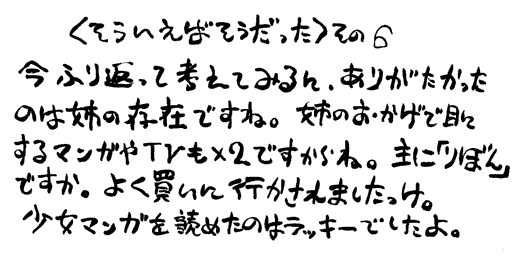 〈そういえばそうだった〉その6
今ふり返って考えてみるに、ありがたかった
のは姉の存在ですね。姉のおかげで目に
するマンガやTVも×2ですからね。主に「りぼん」
ですか。よく買いに行かされましたっけ。
少女マンガを読めたのはラッキーでしたよ。